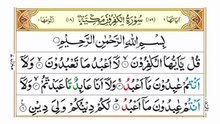 سُوْرَةُ الْكٰفِرُوْنَ مَكِّيَّةٌ
بِسْمِ اللّٰهِ الرَّحْمٰنِ الرَّحِيْمِ
قُلْ يٰۤاَيُّهَا الْكٰفِرُوْنَ ۙ لَاۤ اَعْبُدُ مَا تَعْبُدُوْنَ ۙ وَلَاۤ
اَنْتُمْ عٰبِدُوْنَ مَاۤ اَعْبُدُ ۚ وَلَاۤ اَنَا عَابِدٌ مَّا عَبَدْتُّمْ ۙ وَلَاۤ
اَنْتُمْ عٰبِدُوْنَ مَاۤ اَعْبُدُ ؕ لَكُمْ دِيْنُكُمْ وَلِيَ دِيْنِ